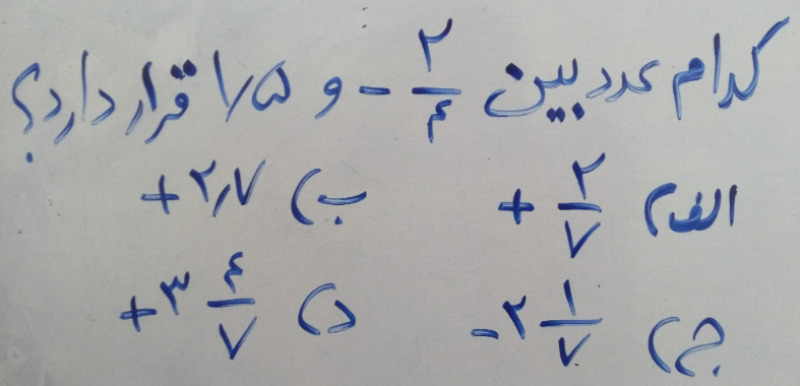 کدام عدد بین -۲/۴ و ۱/۵ قرار دارد؟
الف) +۲/۷ ب) +۲٫۷
ج) -۲ ۱/۷ د) +۳ ۴/۷